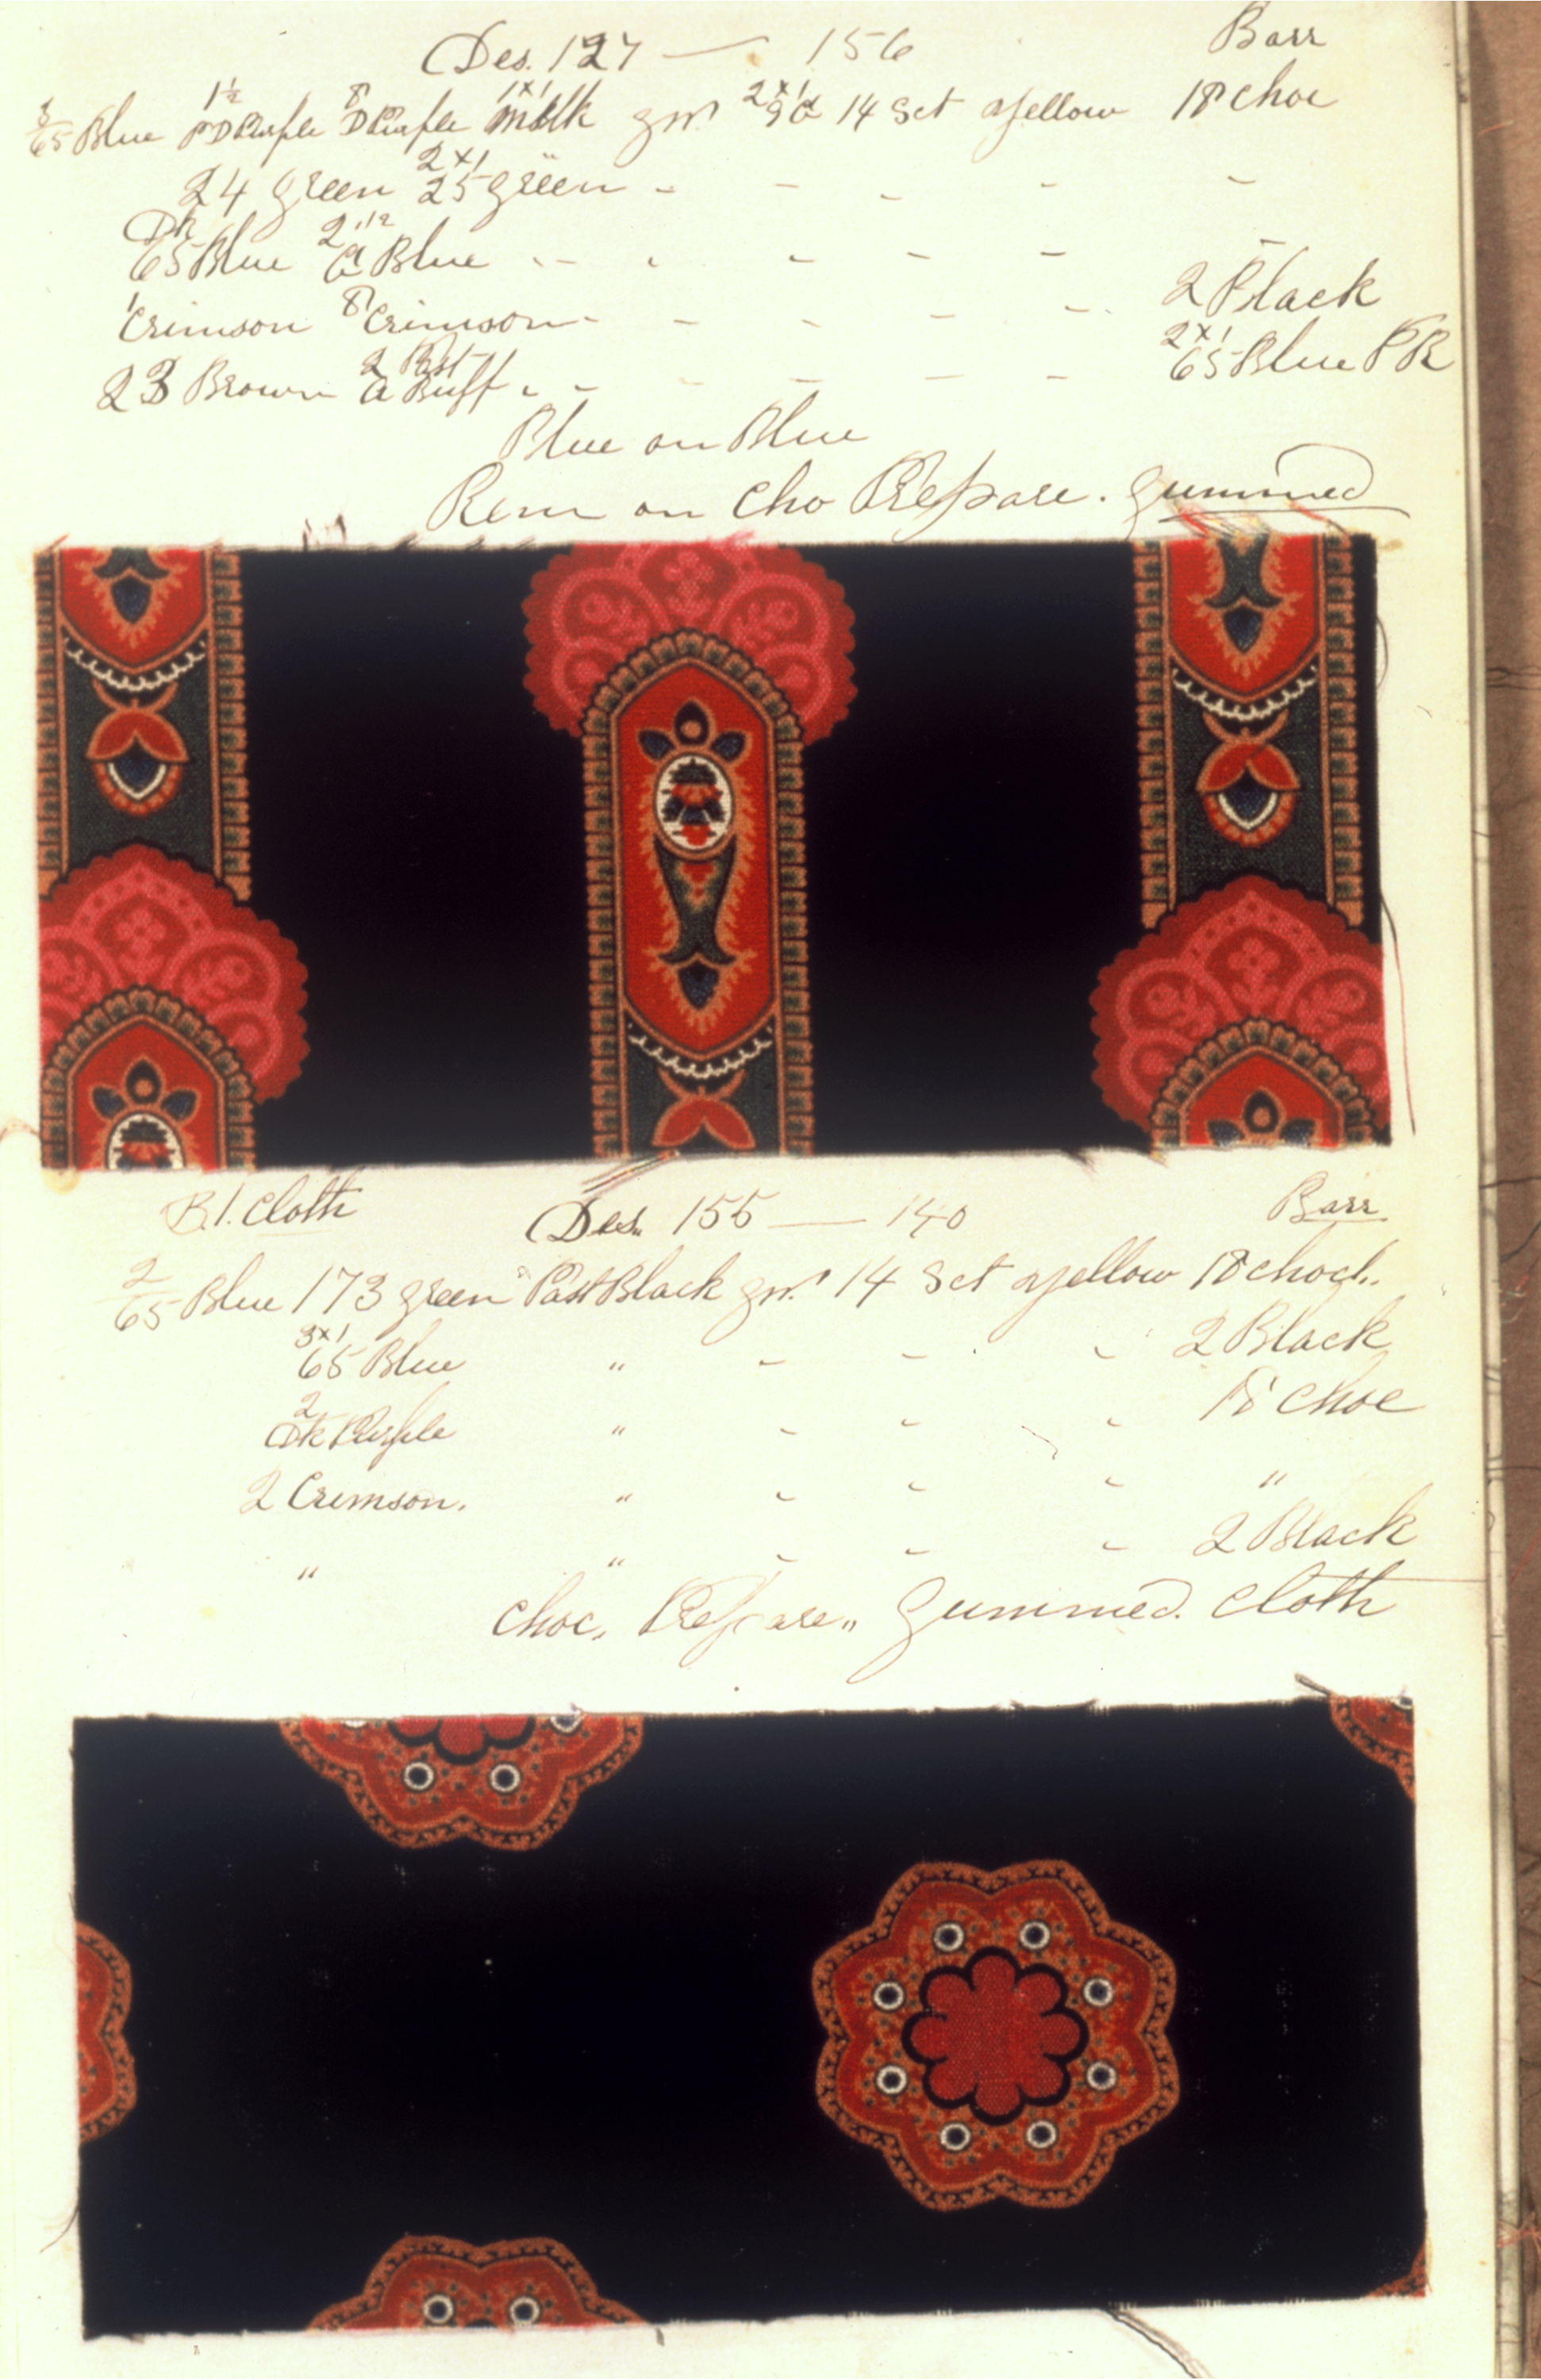 Des. 127 — 156 Barr
65 Blue 1½ D Purple 8 D Purple 1x1 grn 2x1 14 Sct Yellow 18 Choc
24 Green 2x1 25 Green - - - - -
Dk 65 Blue 2 1/2 a Blue - - - - -
1 Crimson 8 Crimson - - - - - 2 Black
23 Brown a Buff - - - - - - 2x1 65 Blue PR
Blue on Blue
Rem on Cho Prepare. Gummed
B1. Cloth Des. 155 — 140 Barr
2/65 Blue 173 green Past Black grn. 14 Sct Yellow 18 Chocl..
3x1 65 Blue " - - - 2 Black
2 Dk Purple " - - - 18 Choc
2 Crimson. " - - - "
" " - - - 2 Black
Choc. Prepare,, Gummed. Cloth